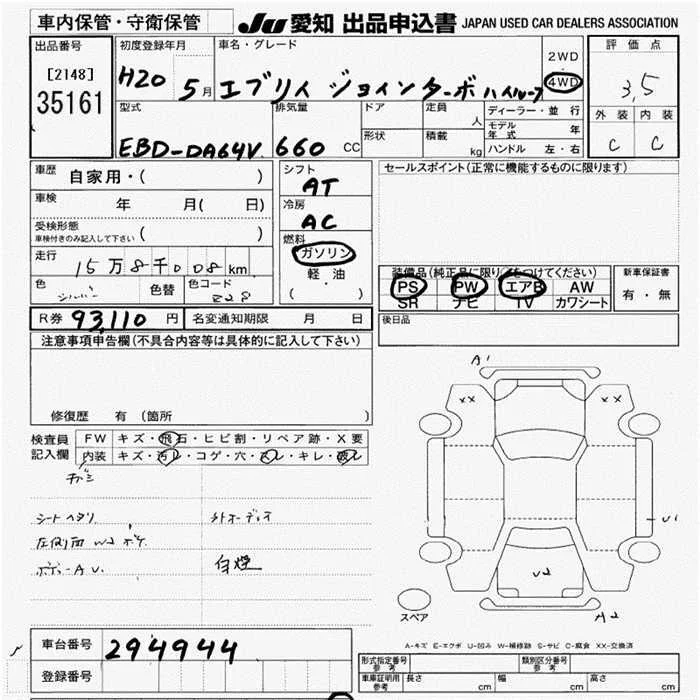 車内保管・守衛保管
JU 愛知 出品申込書 JAPAN USED CAR DEALERS ASSOCIATION
出品番号
[2148]
35161
初度登録年月
H20 5月
車名・グレード
エブリイ ジョインターボ ハイルーフ
2WD
4WD
評価点
3.5
外装 内装
C C
型式
EBD-DA64V
排気量
660 CC
ドア
形状
定員
人
積載
kg
ディーラー・並行
モデル年式 年
ハンドル 左・右
車歴
自家用・( )
車検
年 月( 日)
受検形態
車検付きのみ記入して下さい ( )
走行
15万8千008km
色
シルバー
色替
色コード
Z2S
シフト
AT
冷房
AC
燃料
ガソリン
軽・油
( ・ )
セールスポイント(正常に機能するものに限ります)
装備品(純正品に限り○をつけてください)
PS PW エアB AW
SR ナビ TV カワシート
新車保証書
有・無
R券 93,110 円
名変通知期限 月 日
後日品
注意事項申告欄(不具合内容等は具体的に記入して下さい)
修復歴 有(箇所 )
検査員
記入欄
FW キズ・飛石・ヒビ割・リペア跡・X要
内装 キズ・汚レ・コゲ・穴・スレ・キレ・破レ
キバミ
シートヘタリ
外オーディオ
ボデーAU.
白煙
A1
XX
XX
U1
U2
A2
スペア
A-キズ E-エクボ U-凹み W-補修跡 S-サビ C-腐食 XX-交換済
車台番号
294944
登録番号
形式指定番号
参考
類別区分番号
参考
車庫証明用
参考
長さ cm
幅 cm
高さ cm